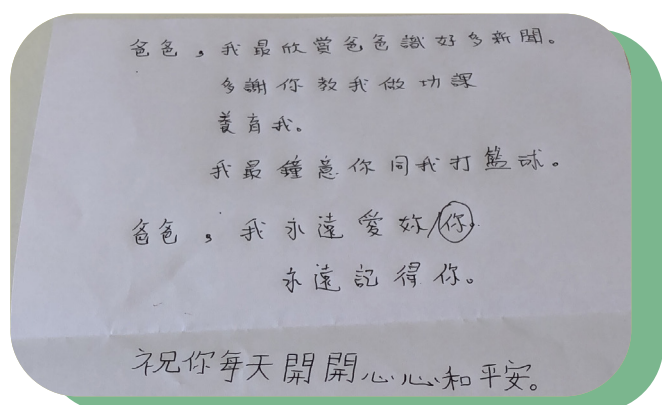 爸爸，我最欣賞爸爸識好多新聞。
多謝你教我做功課
養育我。
我最鐘意你同我打籃球。
爸爸，我永遠愛妳/你。
永遠記得你。
祝你每天開開心心和平安。